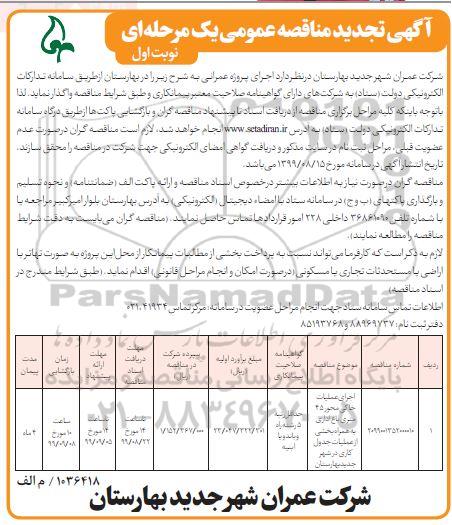 آگهی تجدید مناقصه عمومی یک مرحله‌ای
نوبت اول
شرکت عمران شهر جدید بهارستان در نظر دارد اجرای پروژه عمرانی به شرح زیر را در بهارستان از طریق سامانه تدارکات
الکترونیکی دولت (ستاد) به شرکت های دارای گواهینامه صلاحیت معتبر پیمانکاری و طبق شرایط مناقصه واگذار نماید. لذا
با توجه باینکه کلیه مراحل برگزاری مناقصه از دریافت اسناد تا پیشنهاد مناقصه گران و بازگشایی پاکت ها از طریق درگاه سامانه
تدارکات الکترونیکی دولت (ستاد) به آدرس www.setadiran.ir انجام خواهد شد. لازم است مناقصه گران در صورت عدم
عضویت قبلی، مراحل ثبت نام در سایت مذکور و دریافت گواهی امضای الکترونیکی جهت شرکت در مناقصه را محقق سازند.
تاریخ انتشار آگهی در سامانه مورخ ۱۳۹۹/۰۸/۱۵ می باشد.
مناقصه گران در صورت نیاز به اطلاعات بیشتر در خصوص اسناد مناقصه و ارائه پاکت الف (ضمانتنامه) و نحوه تسلیم
و بارگذاری پاکتهای (ب و ج) در سامانه ستاد با امضاء دیجیتال (الکترونیکی) به آدرس بهارستان بلوار امیرکبیر مراجعه یا
با شماره تلفن ۳۶۸۶۱۰۹۰ داخلی ۲۲۸ امور قراردادها تماس حاصل نمایند. (مناقصه گران می بایست به دقت شرایط
مناقصه را مطالعه نمایند).
لازم به ذکر است که کارفرما می تواند نسبت به پرداخت بخشی از مطالبات پیمانکار از محل این پروژه به صورت تهاتر با
اراضی یا مستحدثات تجاری یا مسکونی (در صورت امکان و انجام مراحل قانونی) اقدام نماید. (طبق شرایط مندرج در
اسناد مناقصه)
اطلاعات تماس سامانه ستاد جهت انجام مراحل عضویت در سامانه: مرکز تماس ۴۱۹۳۴-۰۲۱
دفتر ثبت نام: ۸۸۹۶۹۷۳۷ و ۸۵۱۹۳۷۶۸
ردیف | شماره مناقصه | موضوع مناقصه | گواهینامه صلاحیت پیمانکاری | مبلغ برآورد اولیه (ریال) | سپرده شرکت در مناقصه (ریال) | مهلت دریافت اسناد مناقصه | مهلت ارائه پیشنهاد | زمان بازگشایی | مدت پیمان
۱ | ۲۰۹۹۰۰۱۳۵۲۰۰۰۰۱۰ | اجرای عملیات خاکی محور ۴۵ متری باغ اداری به همراه بخشی از عملیات جدول کاری در شهر جدید بهارستان | حداقل رتبه ۵ رشته راه و باند و یا ابنیه | ۲۳/۰۴۷/۳۲۲/۲۰۱ | ۱/۱۵۲/۳۶۷/۰۰۰ | تا ساعت ۱۴ مورخ ۹۹/۰۸/۲۲ | تا ساعت ۱۴ مورخ ۹۹/۰۹/۰۵ | ساعت ۱۰ مورخ ۹۹/۰۹/۰۸ | ۴ ماه
۱۰۳۶۴۱۸ / م الف
شرکت عمران شهر جدید بهارستان
ParsNamadData
۰۲۱-۸۸۳۴۹۶۷۰-۵